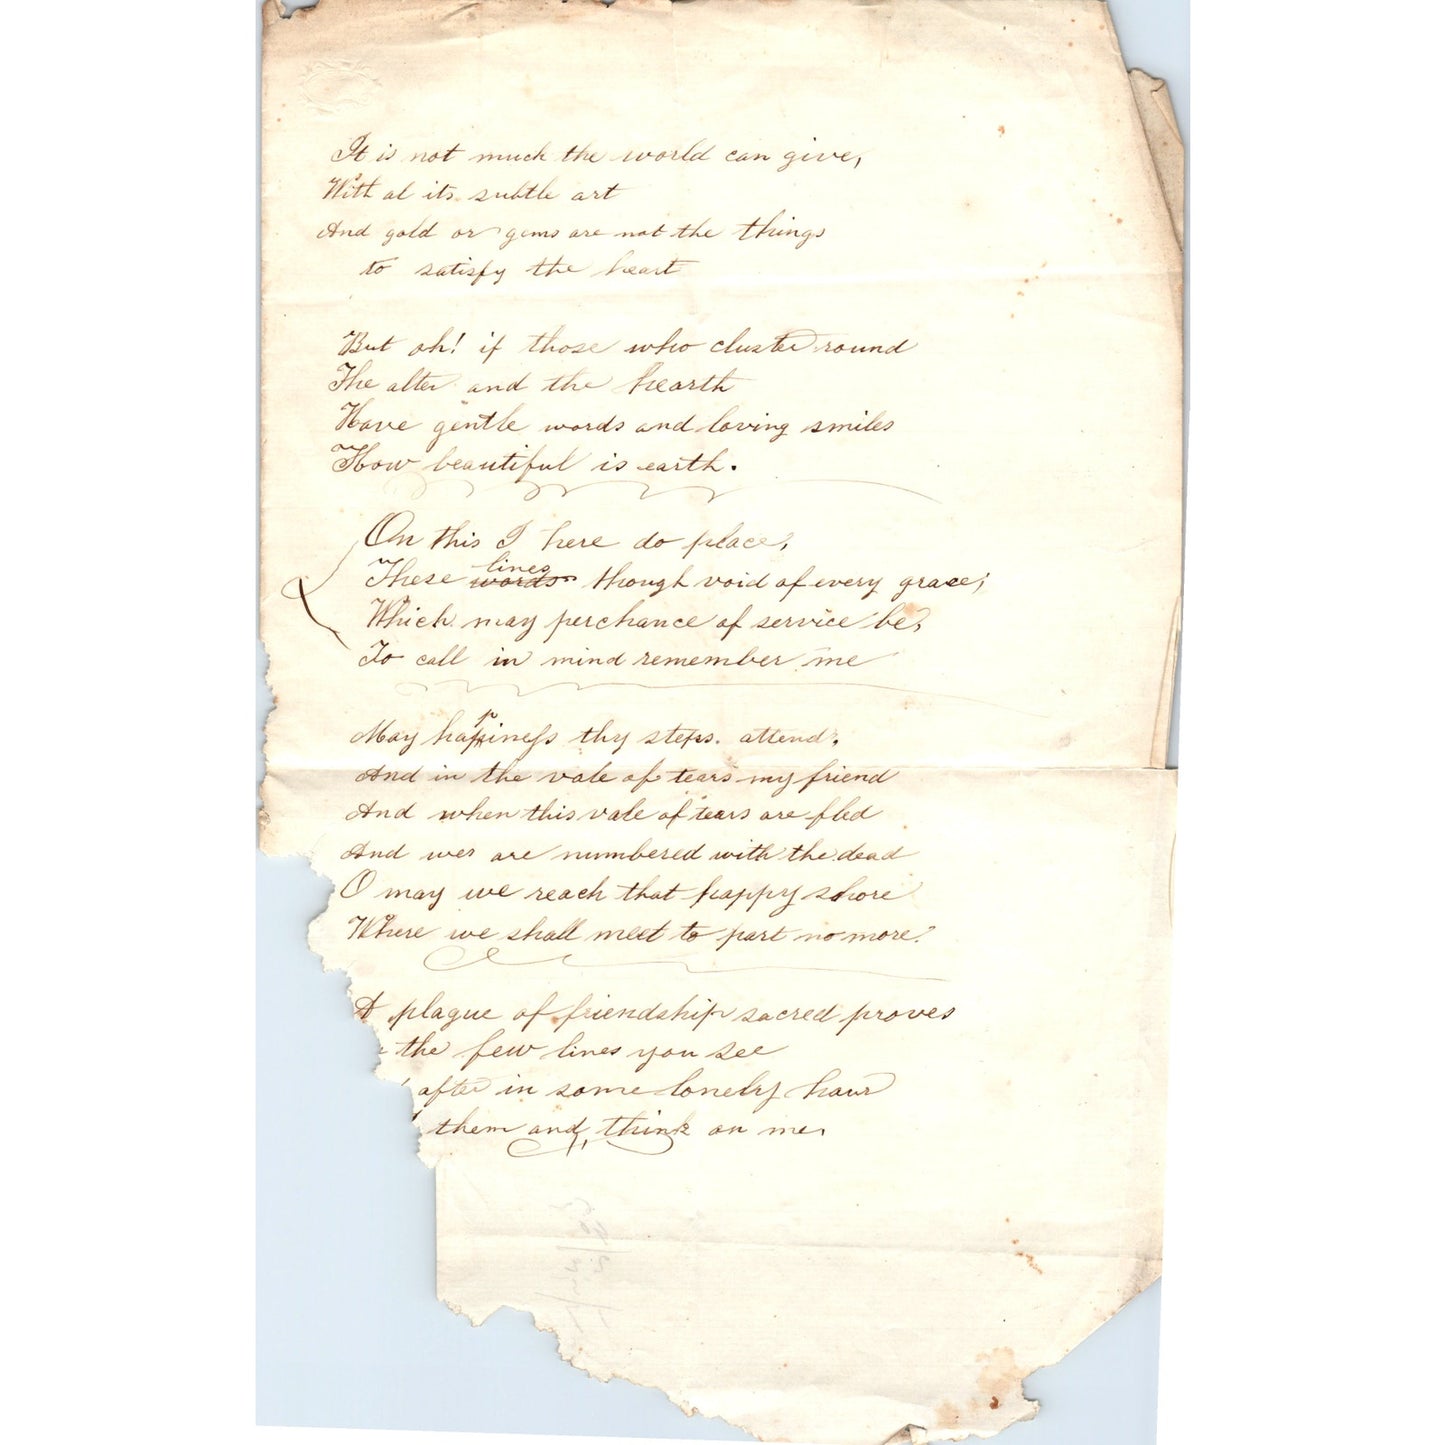 It is not much the world can give,
With al its subtle art
And gold or gems are not the things
to satisfy the heart
But oh! if those who cluster round
The alter and the hearth
Have gentle words and loving smiles
How beautiful is earth.
On this I here do place,
lines
These words though void of every grace;
Which may perchance of service be,
To call in mind remember me
May happiness thy steps attend,
And in the vale of tears my friend
And when this vale of tears are fled
And wee are numbered with the dead
O may we reach that happy shore
Where we shall meet to part no more.
A plague of friendship sacred proves
the few lines you see
after in some lonely hour
them and think on me.